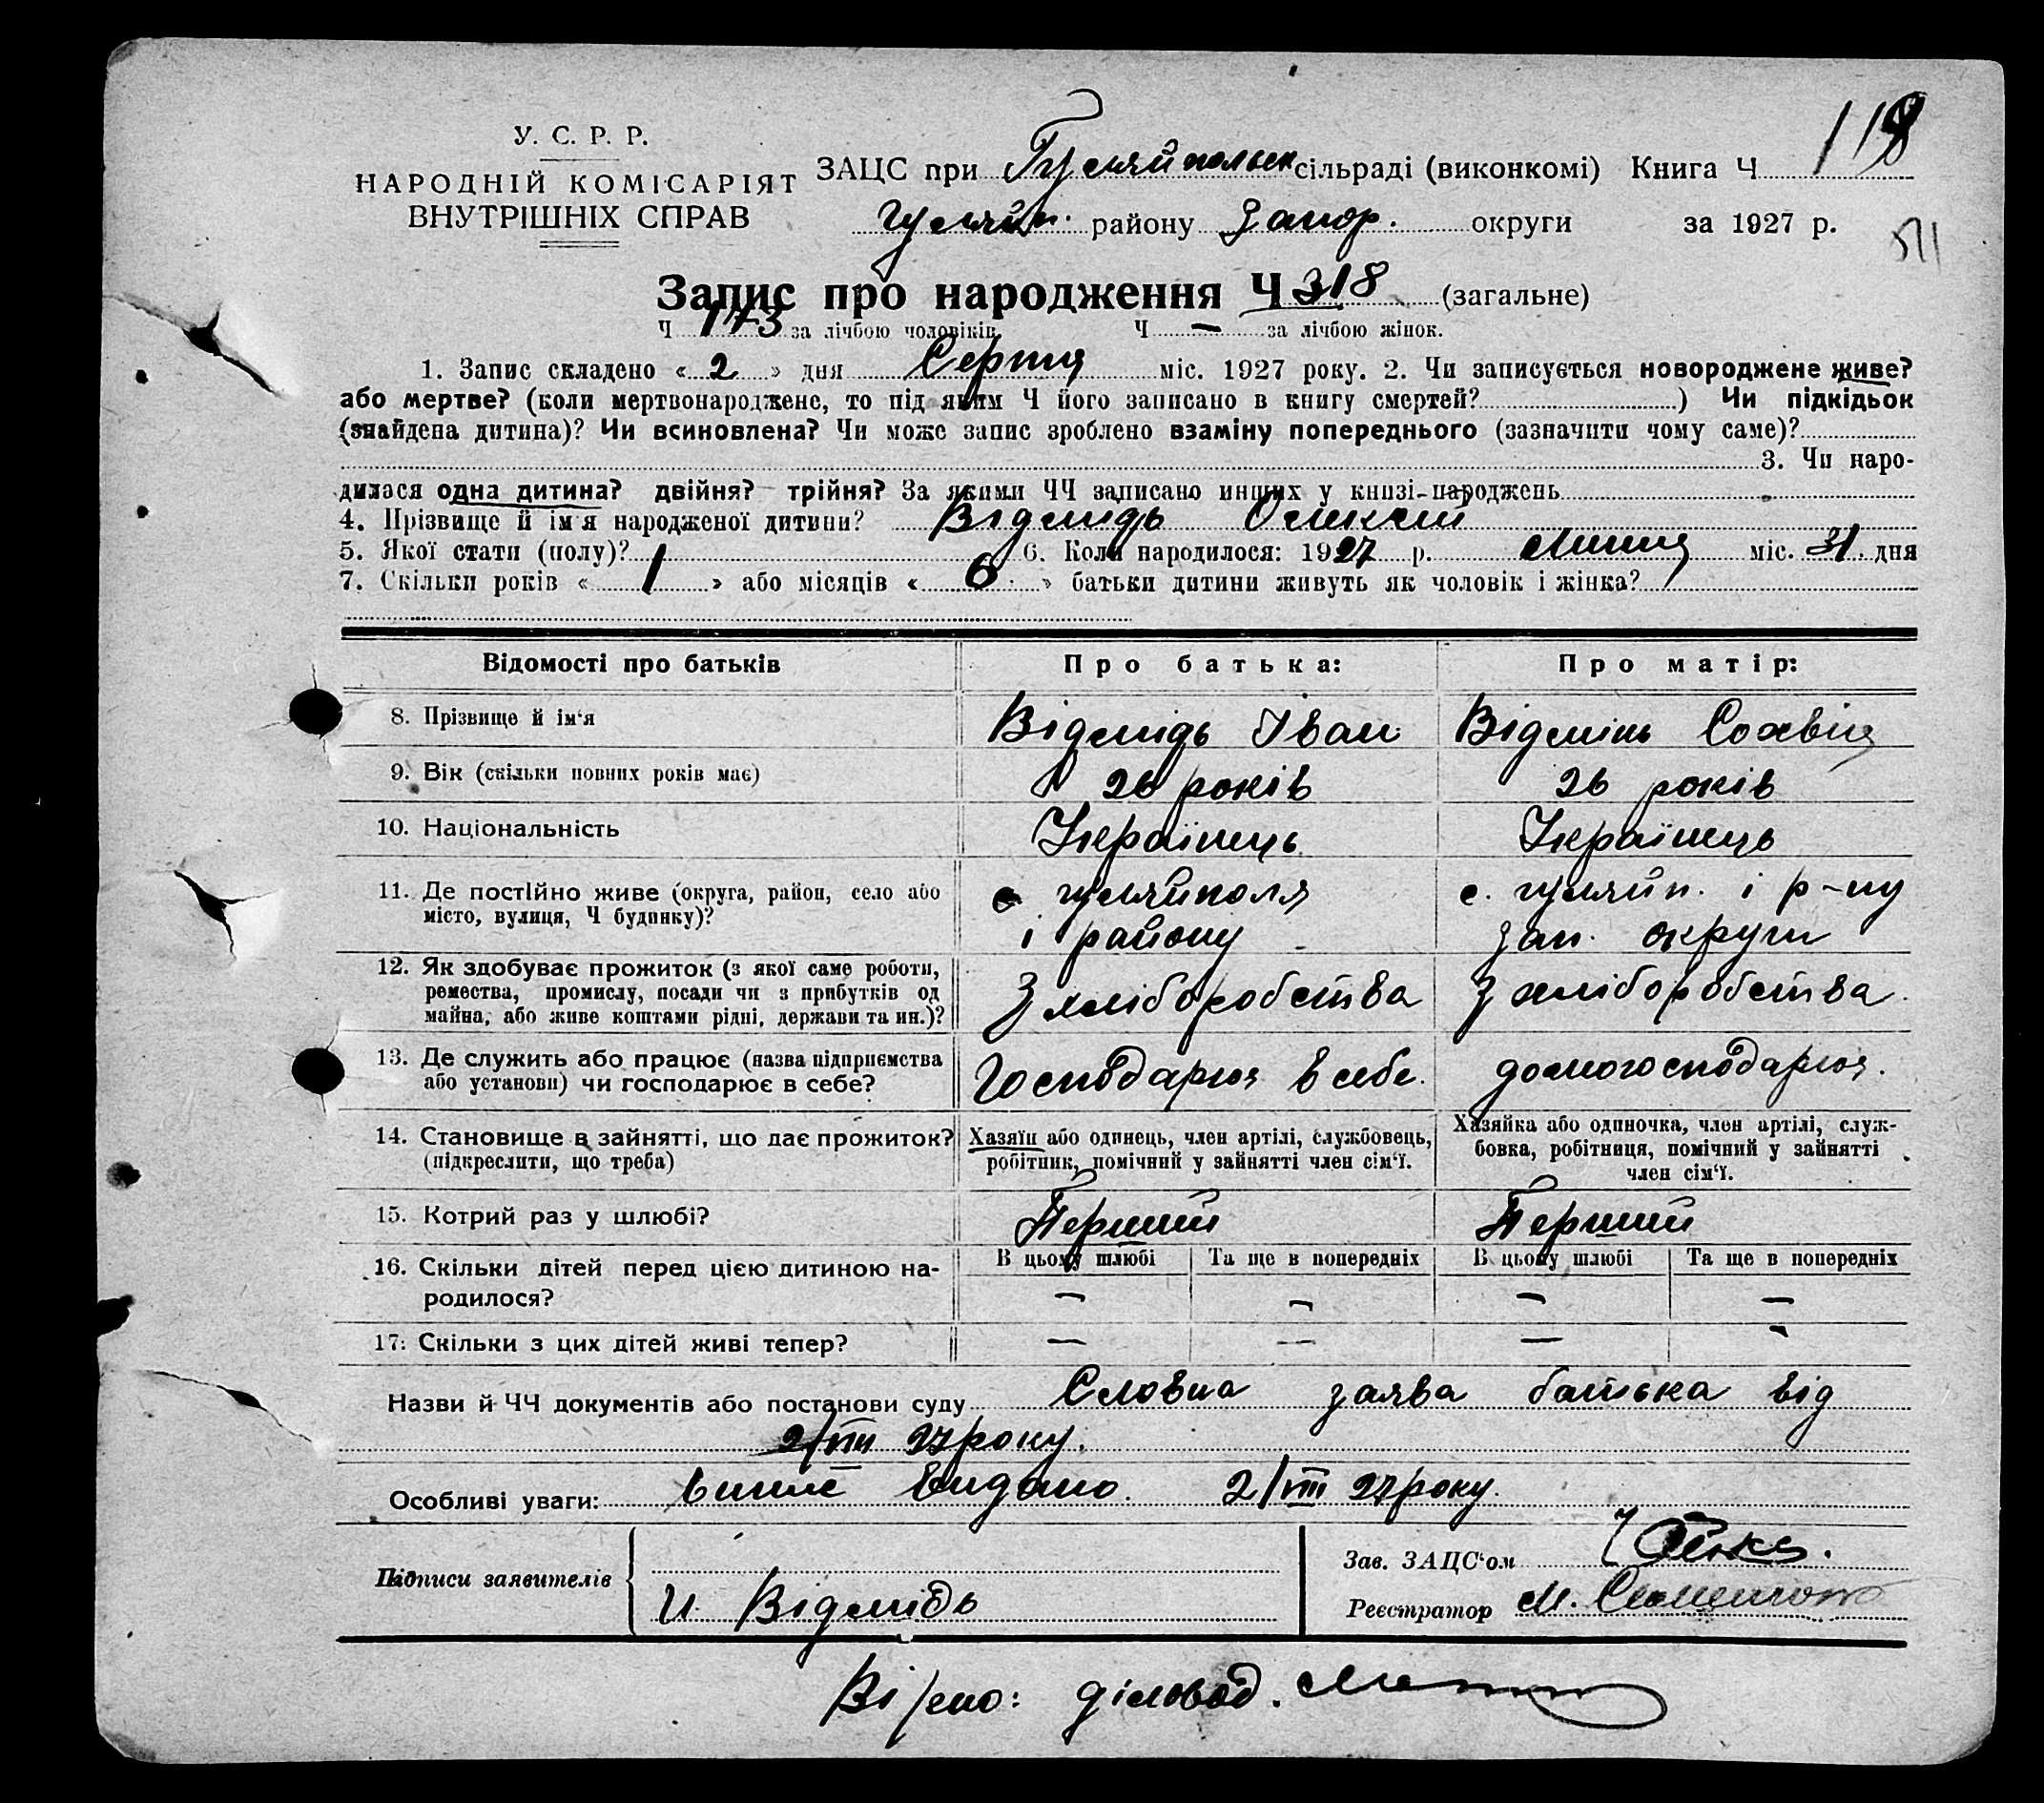 118
У. С. Р. Р.
НАРОДНІЙ КОМІСАРІЯТ
ВНУТРІШНІХ СПРАВ
ЗАЦС при Гуляйпольск сільраді (виконкомі) Книга Ч
Гуляйп. району Запор. округи за 1927 р.
511
Запис про народження Ч 318 (загальне)
Ч 173 за лічбою чоловіків Ч — за лічбою жінок.
1. Запис складено « 2 » дня Серпня міс. 1927 року. 2. Чи записується новороджене живе?
або мертве? (коли мертвонароджене, то під яким Ч його записано в книгу смертей? ) Чи підкідьок
(знайдена дитина)? Чи всиновлена? Чи може запис зроблено взаміну попереднього (зазначити чому саме)?
3. Чи наро-
дилася одна дитина? двійня? трійня? За якими ЧЧ записано инших у книзі-народжень
4. Прізвище й ім'я народженої дитини? Відмидь Олексій
5. Якої стати (полу)? 1 6. Коли народилося: 1927 р. Липня міс. 31. дня
7. Скільки років « 1 » або місяців « 6 » батьки дитини живуть як чоловік і жінка?
Відомості про батьків Про батька: Про матір:
8. Прізвище й ім‘я Відмидь Іван Відмінь Софія
9. Вік (скільки повних років має) 26 років 26 років
10. Національність Українець Українець
11. Де постійно живе (округа, район, село або с. гуляйполя с. гуляйп. і р-ну
місто, вулиця, Ч будинку)? і району зап. округи
12. Як здобуває прожиток (з якої саме роботи,
ремества, промислу, посади чи з прибутків од З хліборобства З хліборобства
майна, або живе коштами рідні, держави та ин.)?
13. Де служить або працює (назва підприємства Господарює в себе. домогосподарює.
або установи) чи господарює в себе?
14. Становище в зайнятті, що дає прожиток? Хазяїн або одинець, член артілі, службовець, Хазяйка або одиночка, член артілі, служ-
(підкреслити, що треба) робітник, помічний у зайнятті член сім‘ї. бовка, робітниця, помічний у зайнятті
член сім‘ї.
15. Котрий раз у шлюбі? Перший Перший
16. Скільки дітей перед цією дитиною на- В цьому шлюбі Та ще в попередніх В цьому шлюбі Та ще в попередніх
родилося? — — — —
17. Скільки з цих дітей живі тепер? — — — -
Назви й ЧЧ документів або постанови суду Словна заява батька від
2/VIII 27 року.
Особливі уваги: видано. 2/VIII 27 року.
Підписи заявителів
Зав. ЗАЦС‘ом
И. Відмидь
Реєстратор М.
Вірно: діловод.